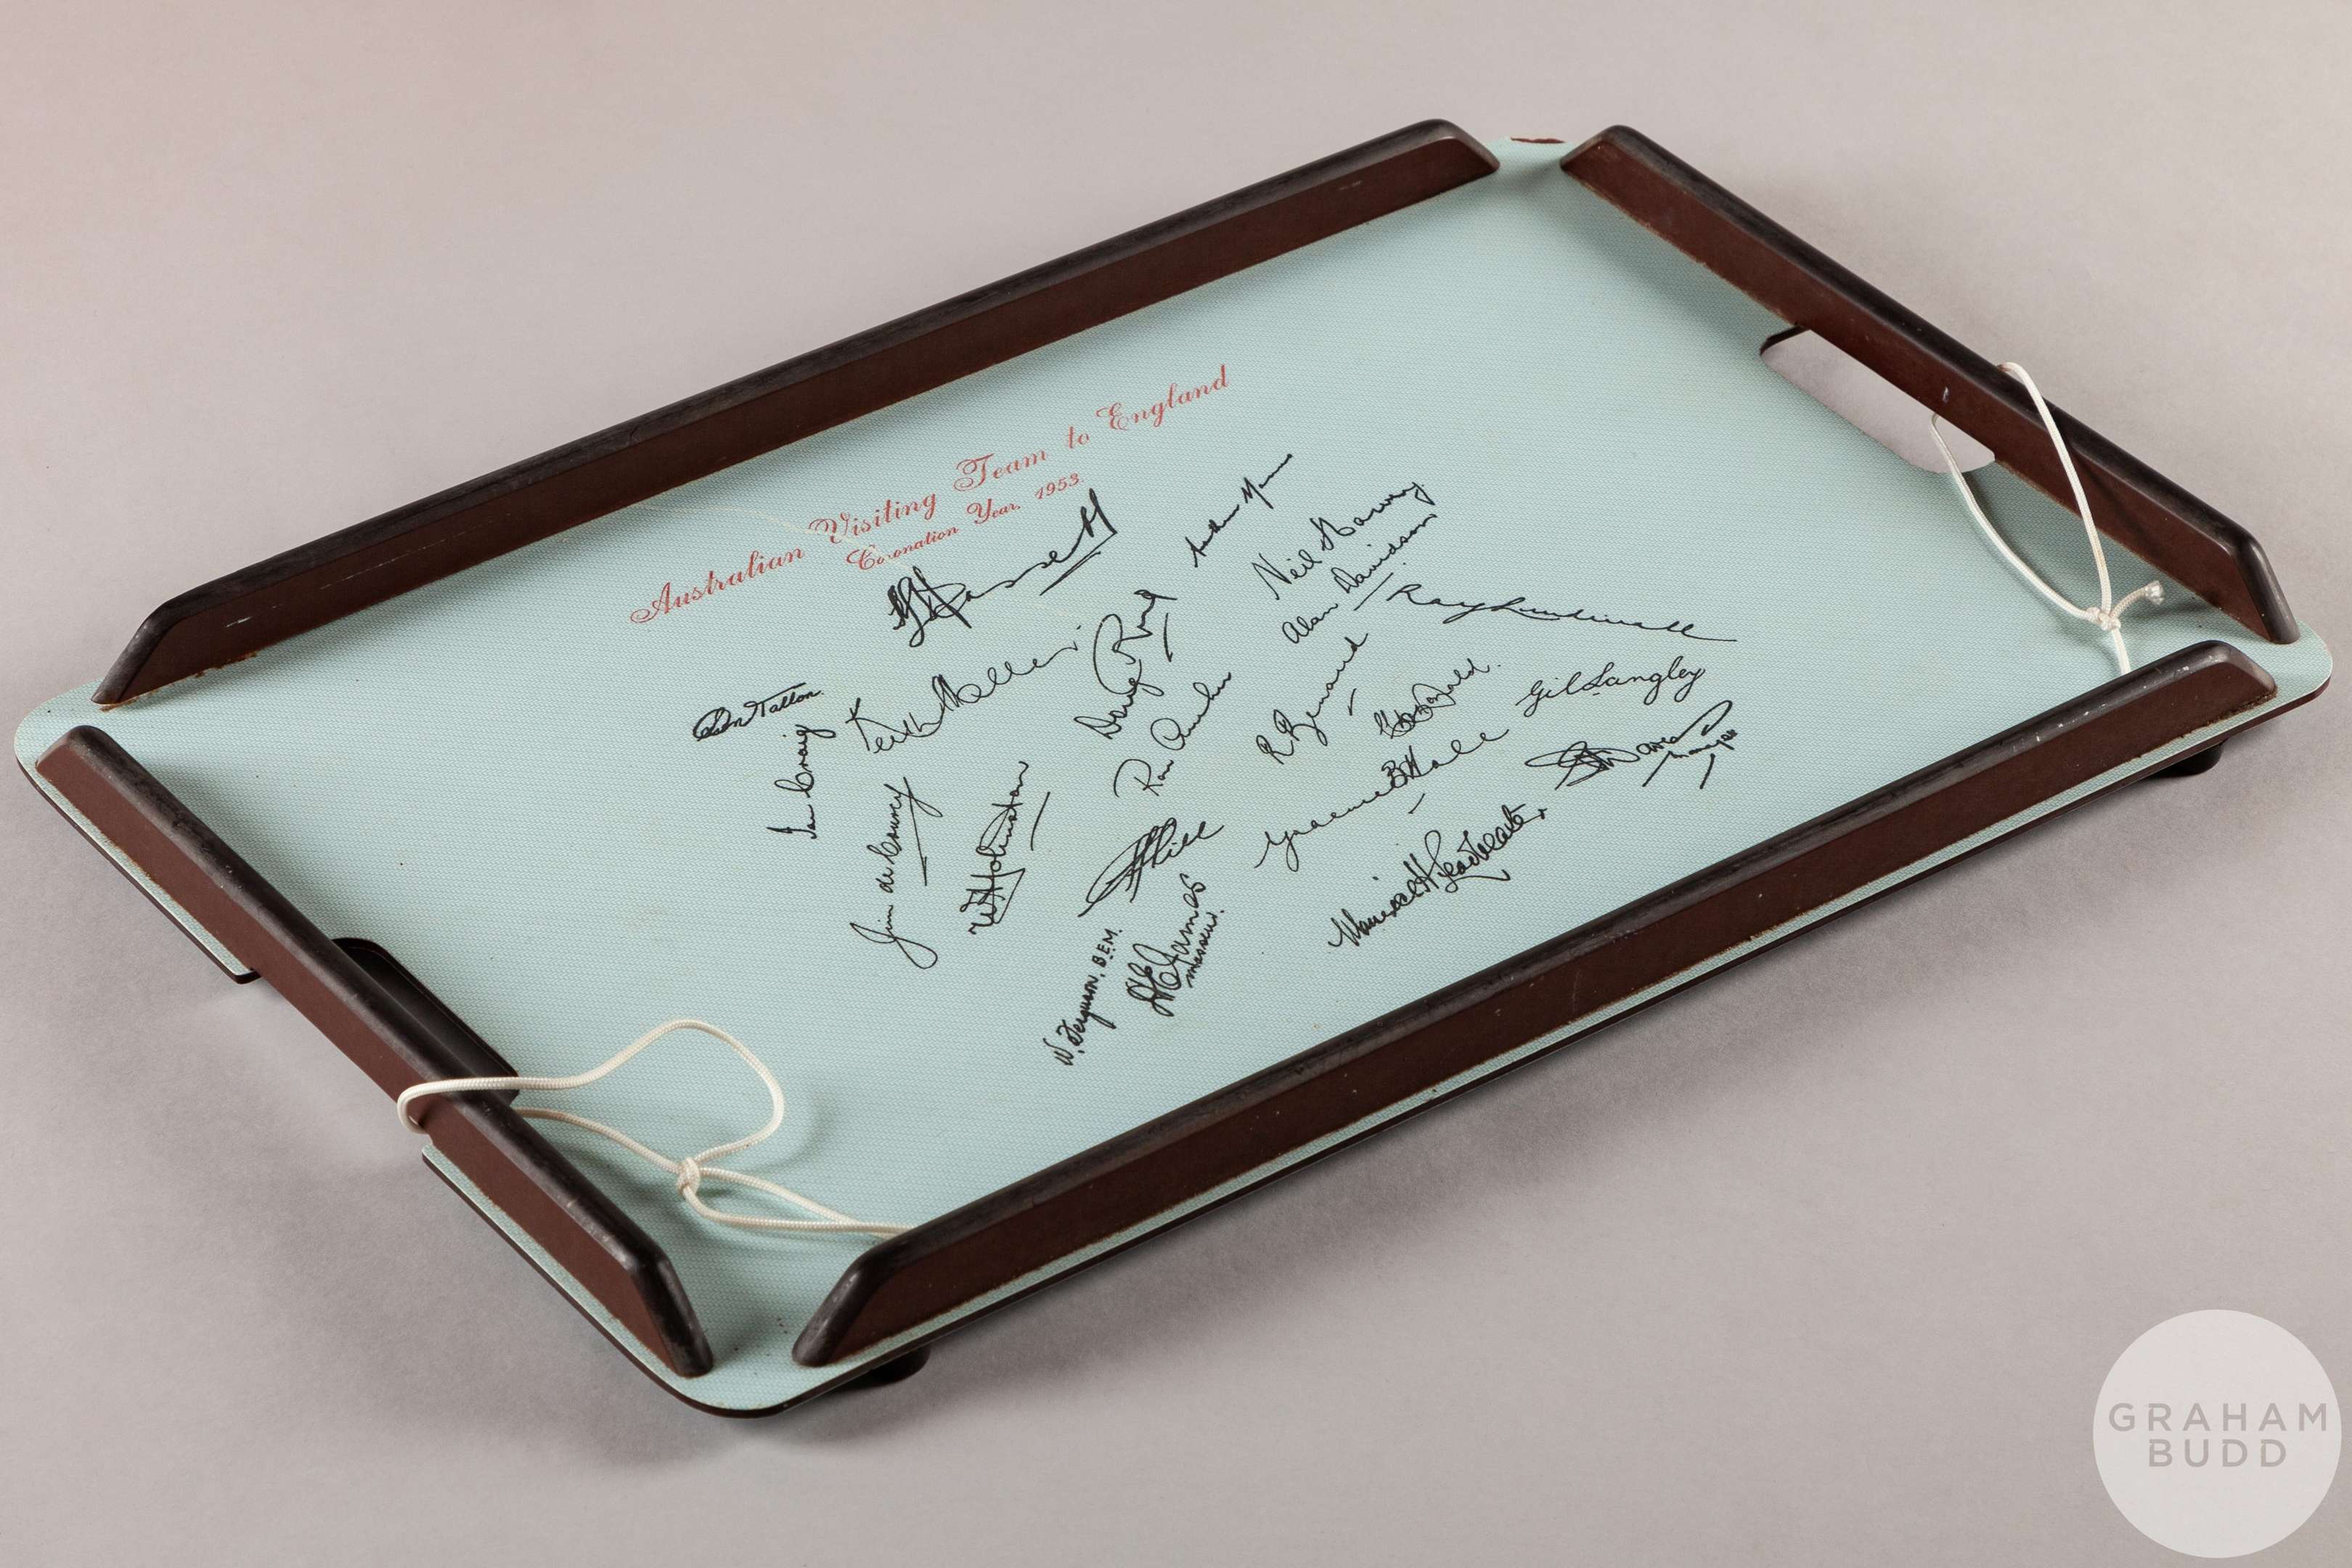 Australian Visiting Team to England
Coronation Year. 1953.
A L Hassett
Arthur Morris
Neil Harvey
Alan Davidson
Ray Lindwall
Don Tallon.
Ian Craig
Keith Miller
Doug Ring
Ron Archer
R Benaud
G. Hole
Gil Langley
Jim de Courcy
W A Johnston
J Hill
Graeme B Hole
G A Davies
Manager
W. Ferguson, B.E.M.
A E James
Masseur.
GRAHAM
BUDD